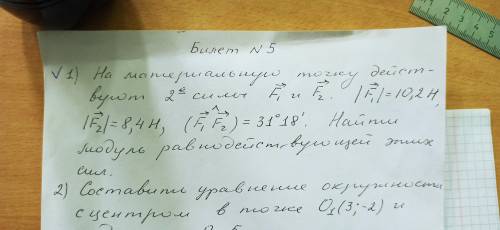 Билет N 5
√ 1) На материальную точку дейст-
вуют 2е силы F₁ и F₂. |F₁| = 10,2 Н,
|F₂| = 8,4 Н, (F₁ ^ F₂) = 31°18'. Найти
модуль равнодействующей этих
сил.
2) Составить уравнение окружности
с центром в точке O₁(3; -2) и